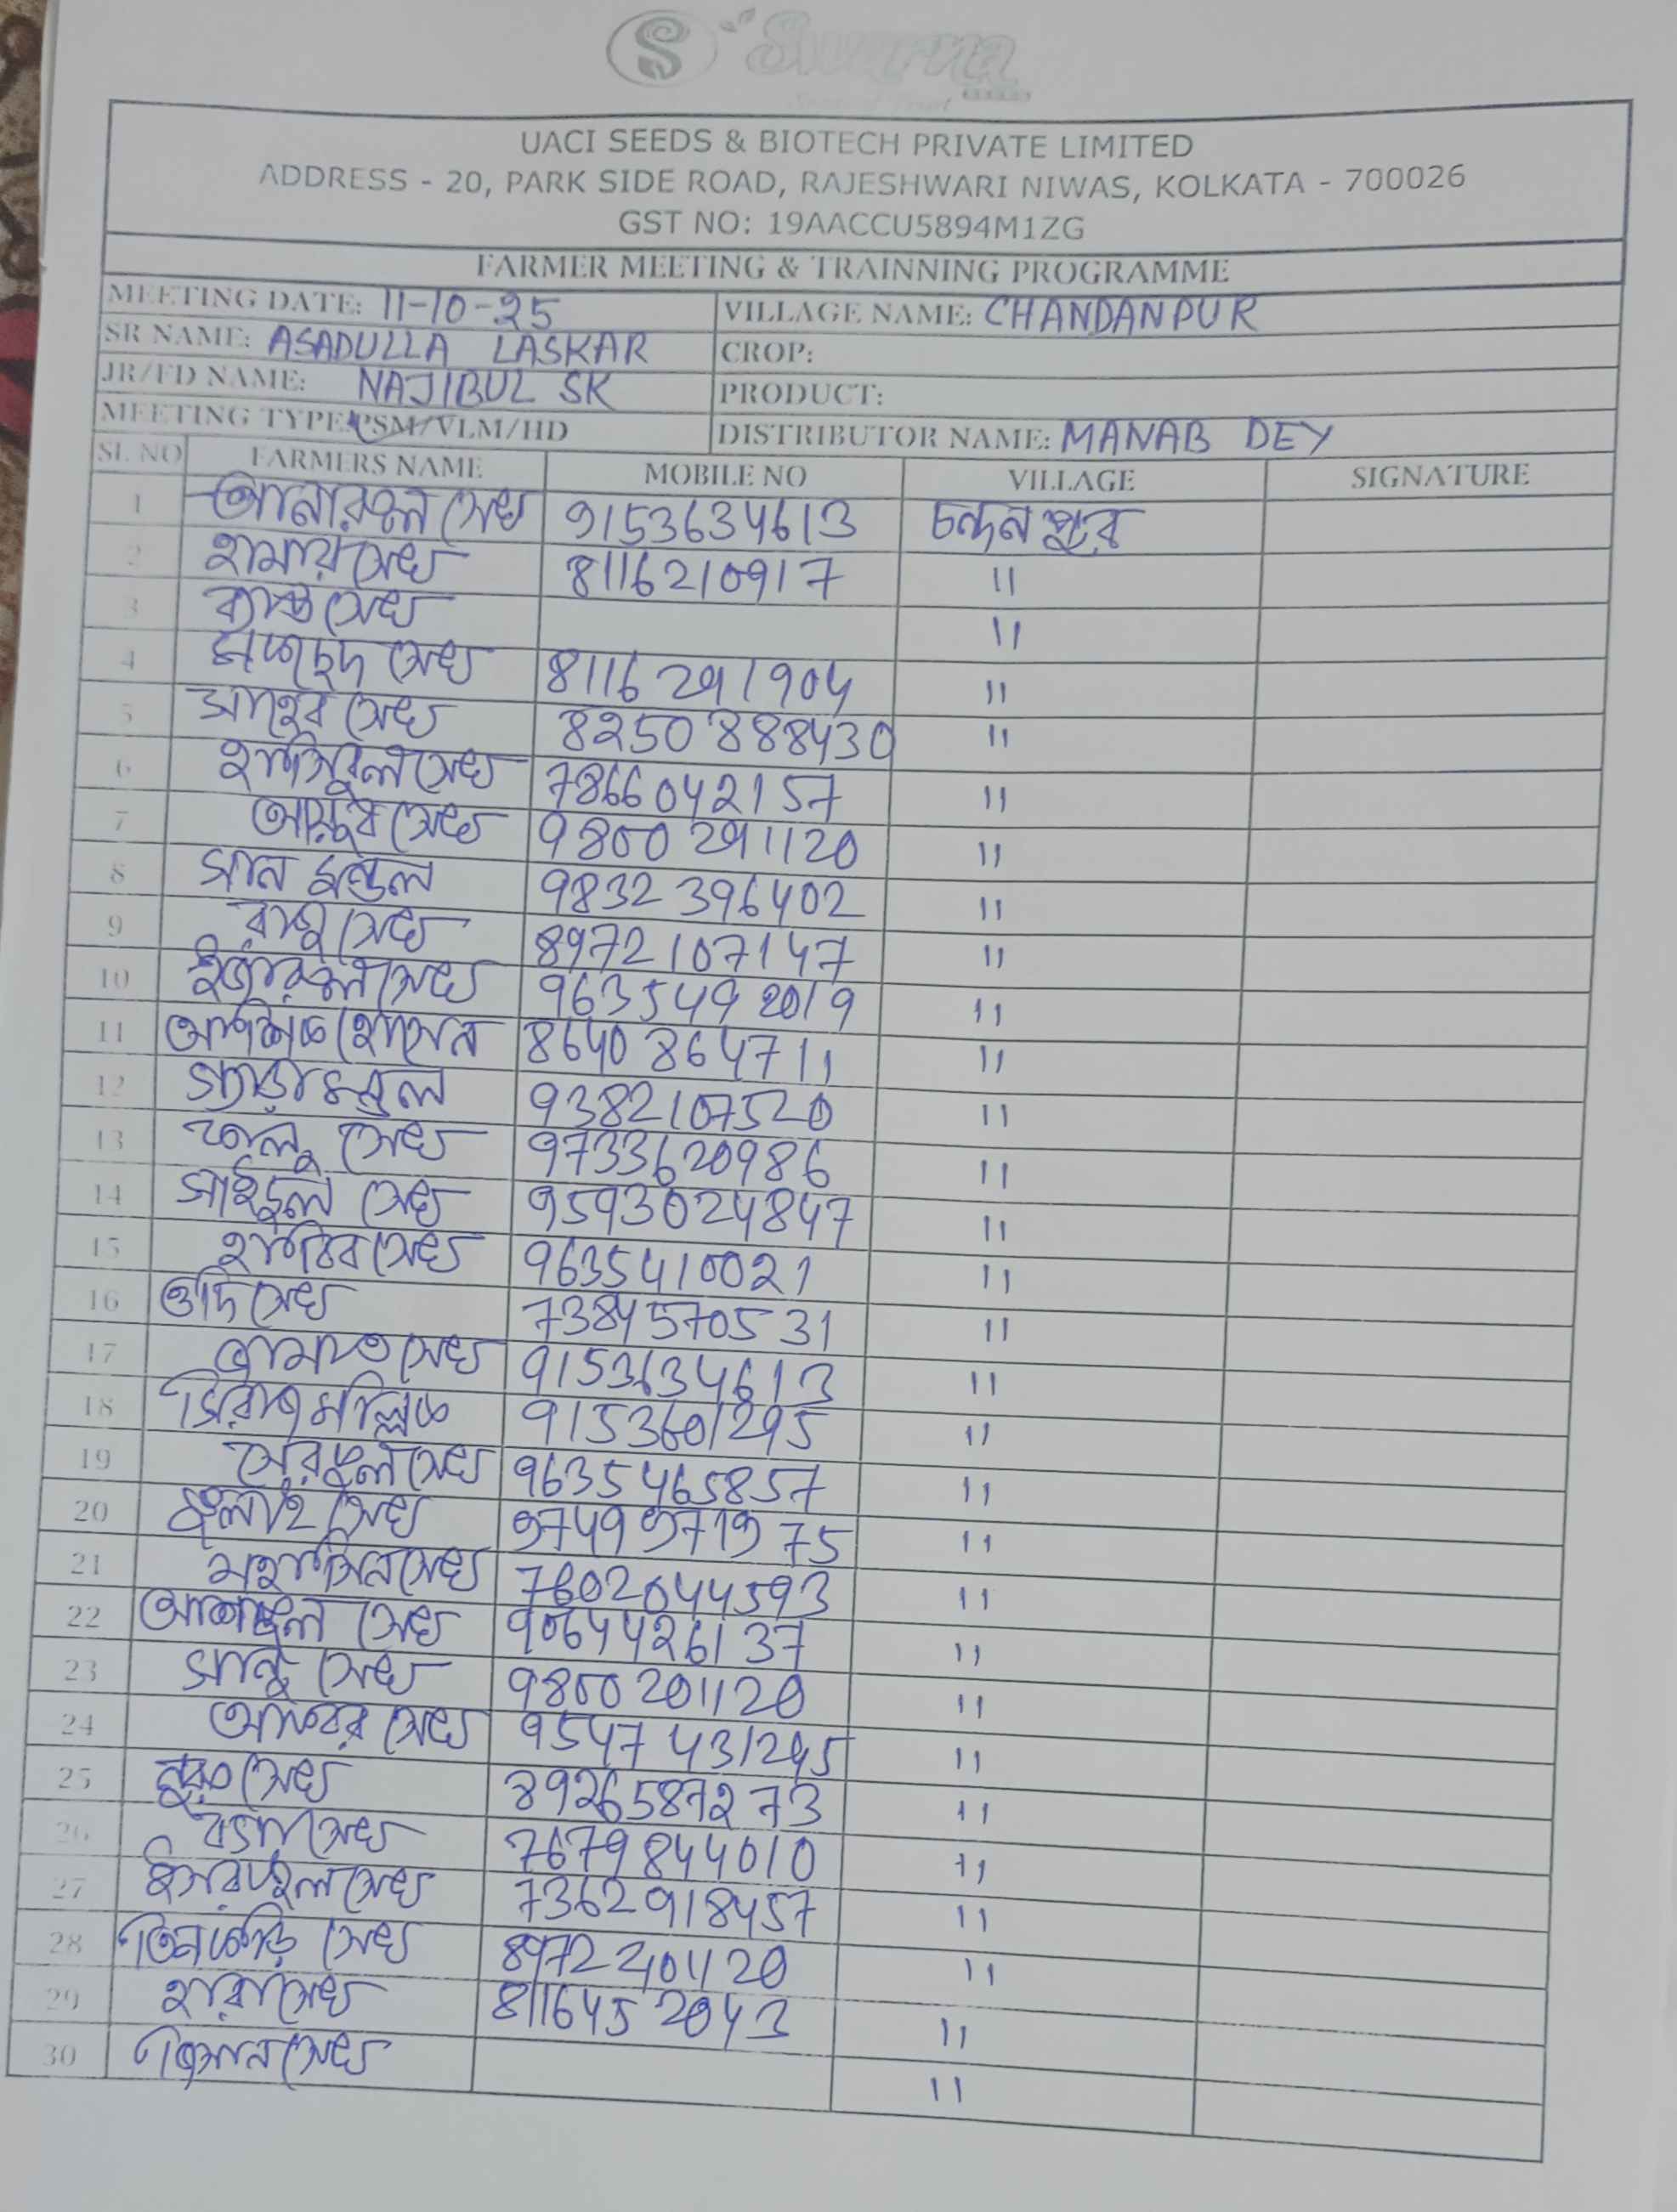 S Swarna
UACI SEEDS & BIOTECH PRIVATE LIMITED
ADDRESS - 20, PARK SIDE ROAD, RAJESHWARI NIWAS, KOLKATA - 700026
GST NO: 19AACCU5894M1ZG
FARMER MEETING & TRAINNING PROGRAMME
MEETING DATE: 11-10-25 VILLAGE NAME: CHANDANPUR
SR NAME: ASADULLA LASKAR CROP:
JR/FD NAME: NAJIBUL SK PRODUCT:
MEETING TYPE: PSM/VLM/HD DISTRIBUTOR NAME: MANAB DEY
SL NO FARMERS NAME MOBILE NO VILLAGE SIGNATURE
1 আনারুল সেখ 9153634613 চন্দনপুর
2 হামায় সেখ 8116210917 11
3 সেখ 11
4 সেখ 8116291904 11
5 সাহেব সেখ 8250888430 11
6 হাসিবুল সেখ 7866042157 11
7 আয়ুব সেখ 9800291120 11
8 সান মন্ডল 9832396402 11
9 রাজু সেখ 8972107147 11
10 সেখ 9635492019 11
11 হোসেন 8640864711 11
12 মন্ডল 9382107520 11
13 সেখ 9733620986 11
14 সাইদুল সেখ 9593024847 11
15 সেখ 9635410021 11
16 সেখ 7384570531 11
17 সেখ 9153634613 11
18 সিরাজ মল্লিক 9153601295 11
19 সেখ 9635465857 11
20 সেখ 9749971975 11
21 মহাসিন সেখ 7602044593 11
22 সেখ 9064426137 11
23 সান্টু সেখ 9800201120 11
24 সেখ 9547431295 11
25 সেখ 8926587273 11
26 সেখ 7679844010 11
27 সেখ 7362918457 11
28 তিনকড়ি সেখ 8972201120 11
29 হারা সেখ 8116452043 11
30 সেখ 11